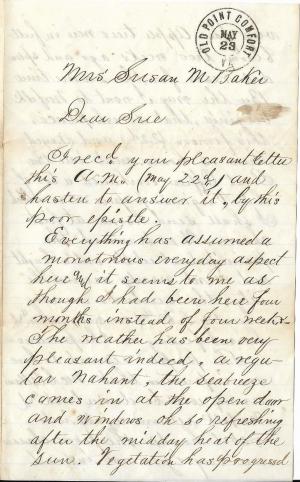 OLD POINT COMFORT
MAY
23
VA
Mrs Susan M Baker
Dear Sue
I recd. your pleasant letter
this A.M. (May 22d) and
hasten to answer it, by this
poor epistle.
Everything has assumed a
monotonous everyday aspect
here & it seems to me as
though I had been here four
months instead of four weeks.
The weather has been very
pleasant indeed, a regu-
lar Nahant, the seabreeze
comes in at the open door
and windows oh so refreshing
after the midday heat of the
sun. Vegetation has progressed